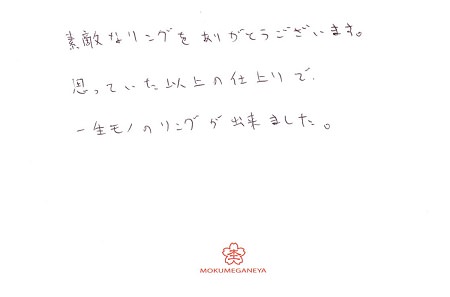 素敵なリングをありがとうございます。
思っていた以上の仕上りで、
一生モノのリングが出来ました。
MOKUMEGANEYA